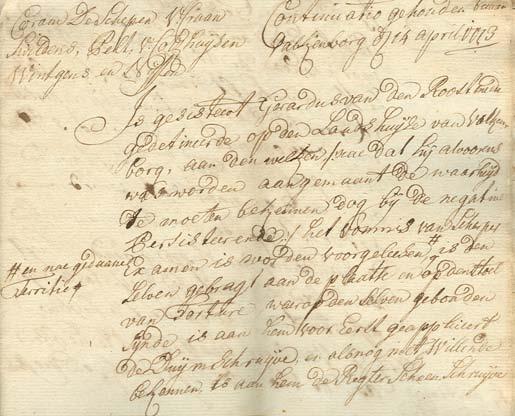 Coram De Schepen
en
Continuatio gehouden binnen
Valkenborg d 14 april 1773
Is gesisteert Gerardus van den Roost
gedetineerde op den Landshuyse van Valken
borg, aan den welken, nae dat hij alvorens
was worden aangemaant de waarhyd
te moeten bekennen dog bij de negative
Persisteerende, het vonnis van Scherper
Examen is worden voorgelesen # is den
selven gebragt aan de plaatse en op den stoel
van Torture waar op den selven gebonden
synde is aan hem voor Eerst geappliceert
de Duym Schruyve, en alsnog niet Willende
bekennen, is aan hem de Regter Scheen Schruyve
# en nae gedaane
Territie #